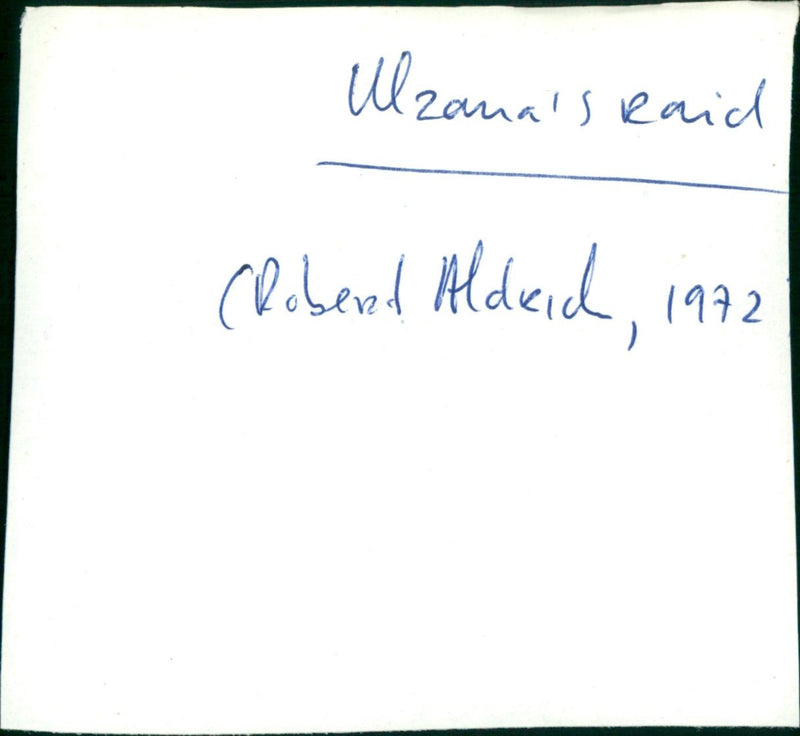 Ulzana's Raid
(Robert Aldrich, 1972